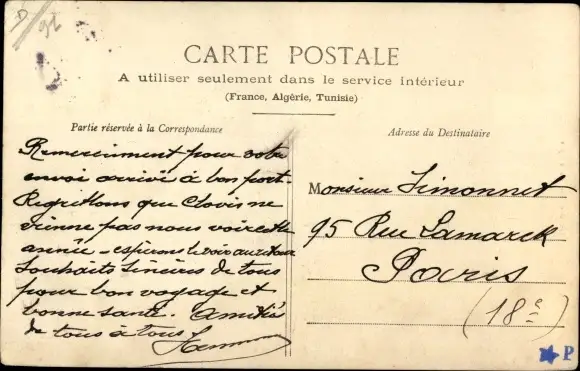 D
92
CARTE POSTALE
A utiliser seulement dans le service intérieur
(France, Algérie, Tunisie)
Partie réservée à la Correspondance
Remerciment pour votre
envoi arrivé à bon port.
Regrettons que Clovis ne
vienne pas nous voir cette
année - espérons le voir au retour
Souhaits sincères de tous
pour bon voyage et
bonne santé. Amitiés
de tous à tous
Adresse du Destinataire
Monsieur Simonnet
95 Rue Lamarck
Paris
(18e)
P